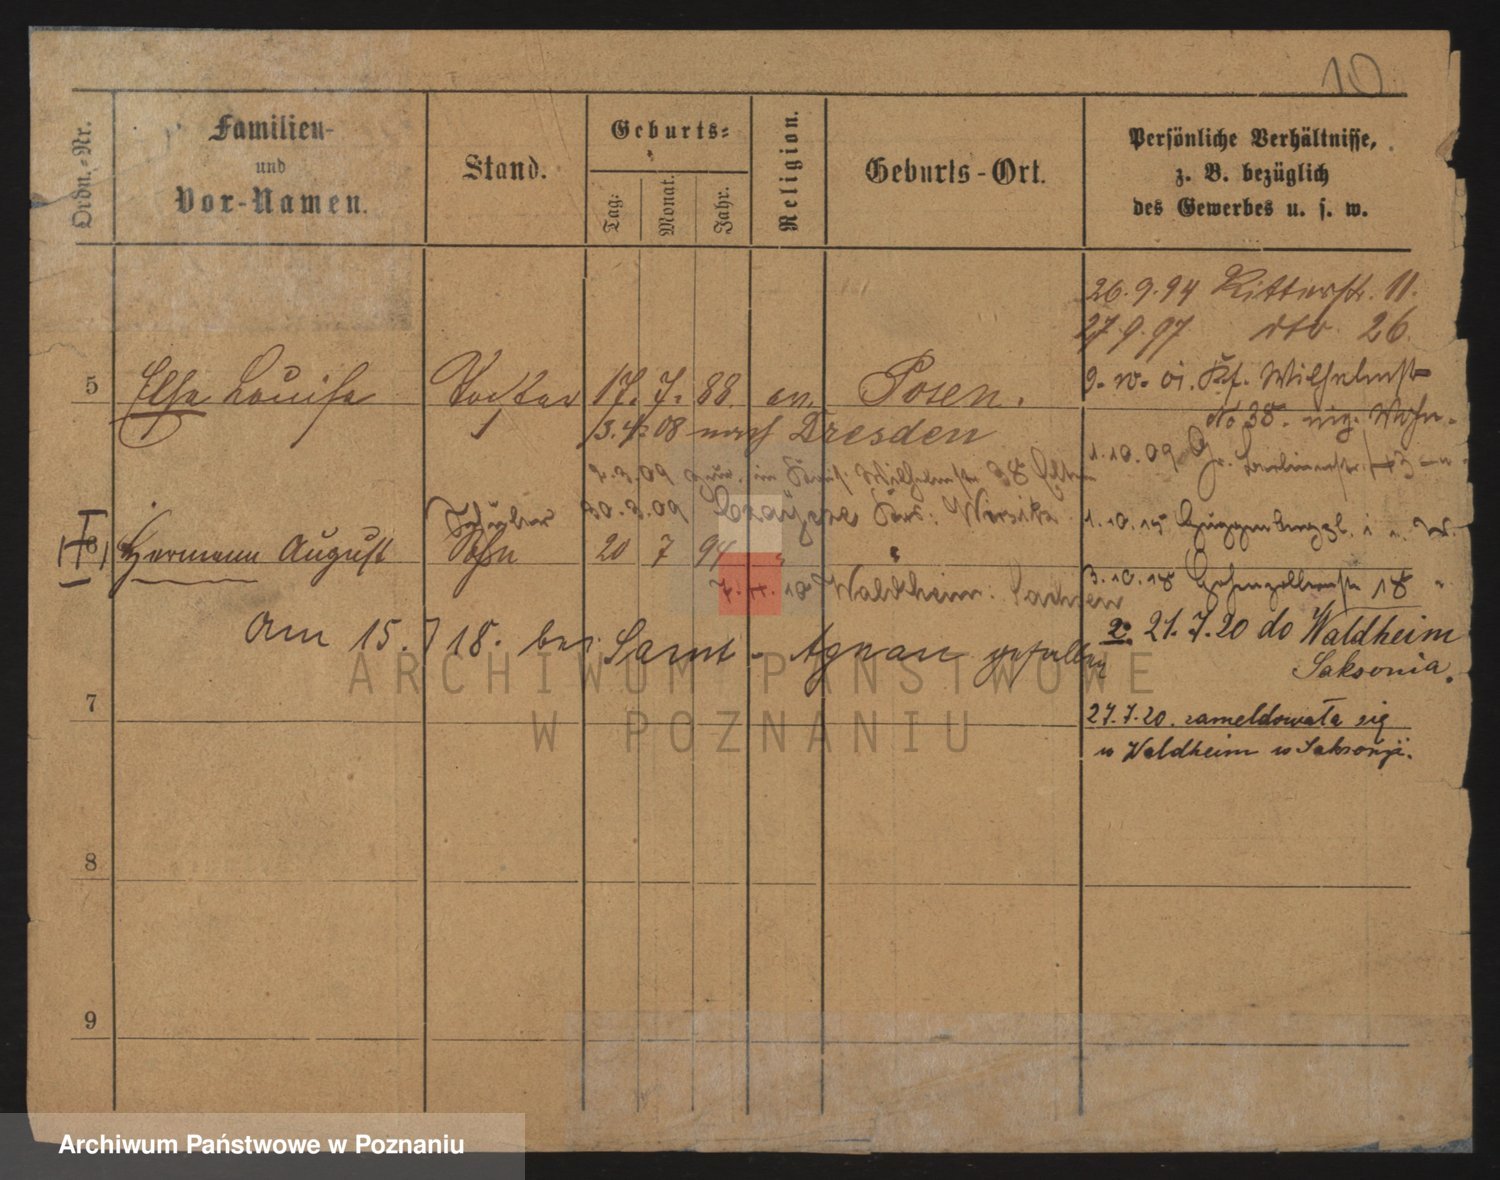 10
Ordn.-Nr.
Familien-
und
Vor-Namen.
Stand.
Geburts-
Tag.
Monat.
Jahr.
Religion.
Geburts-Ort.
Persönliche Verhältnisse,
z. B. bezüglich
des Gewerbes u. s. w.
26.9.94 Ritterstr. 11.
27.9.97 dto 26.
5 Elsa Louise Tochter 17. 7. 88. ev. Posen.
Wilhelmstr
No 38.
13.4.08 nach Dresden
1.10.09 Gr. Berlinerstr.
2.3.09 Wilhelmstr 38 Eltern
Schüler 30.3.09 Krs: Wirsitz
1.10.15
6 Hermann August Sohn 20 7 94 " "
3.10.18 Hohenzollernstr 18
7.4.10 Waldheim. Sachsen
Am 15.7 18. bei Saint-Agnan gefallen
2. 21.7.20 do Waldheim
Saksonia.
7
27.7.20. zameldowała się
w Waldheim w Saksonji.
8
9
ARCHIWUM PAŃSTWOWE
W POZNANIU
Archiwum Państwowe w Poznaniu